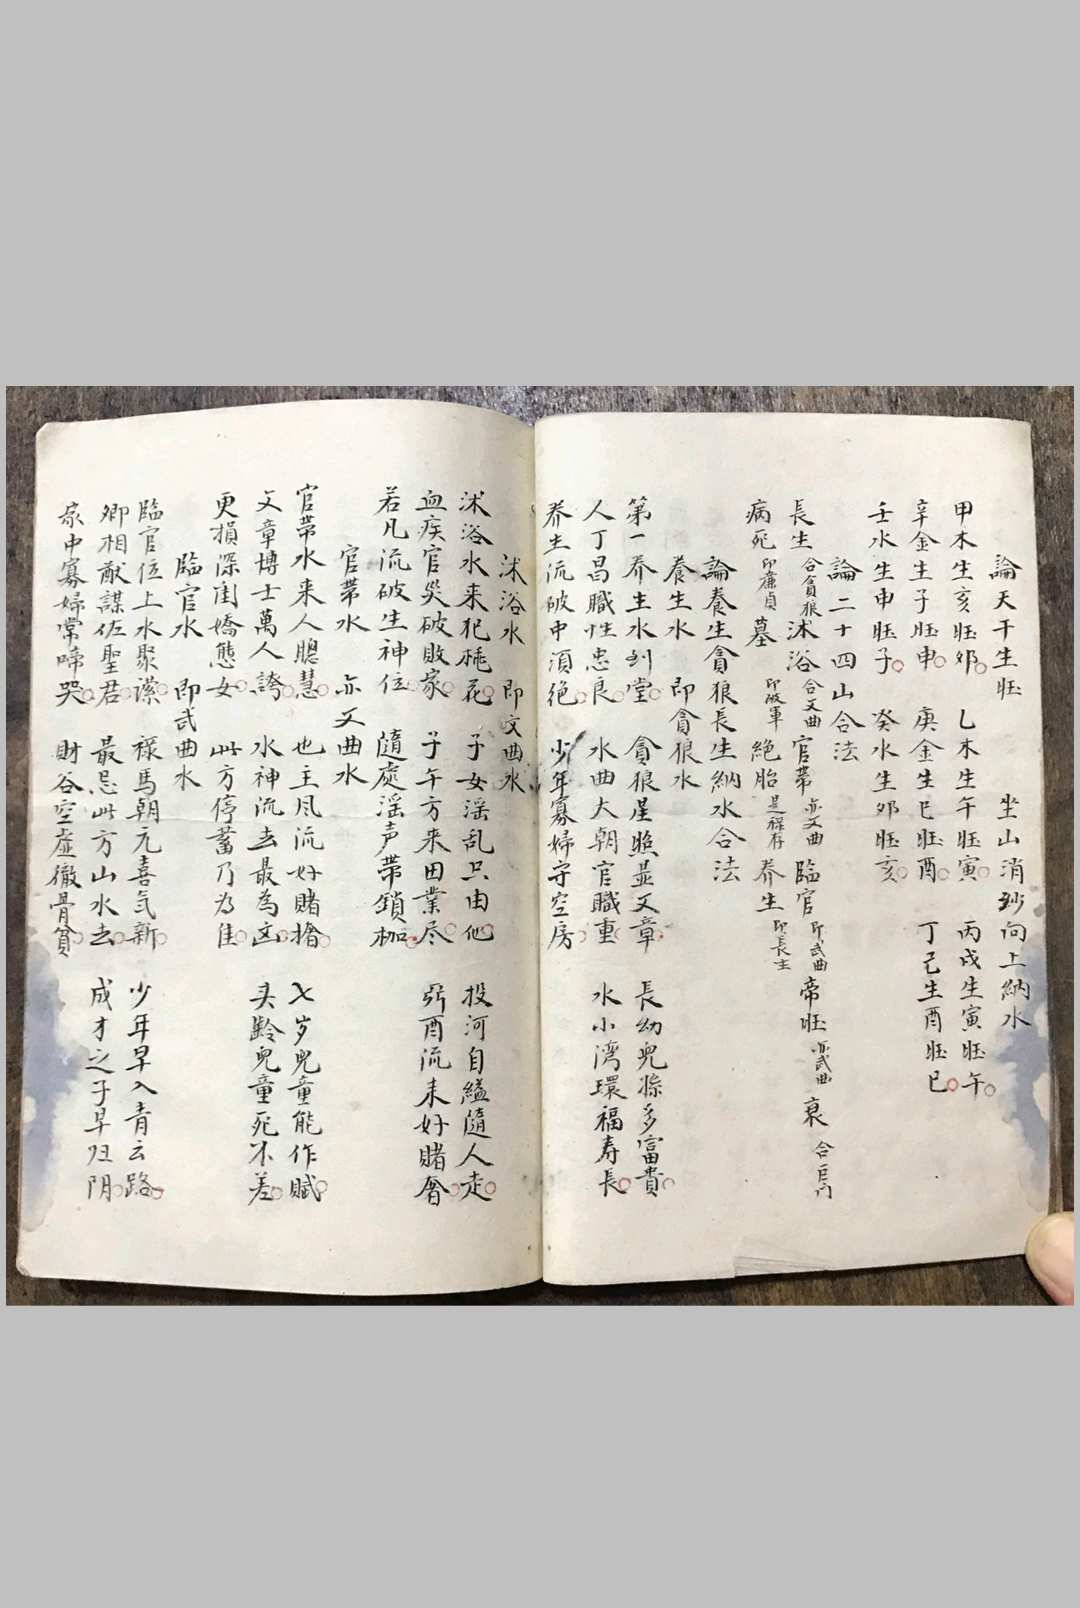 論天干生旺　坐山消砂向上納水
甲木生亥旺卯　乙木生午旺寅　丙戊生寅旺午
辛金生子旺申　庚金生巳旺酉　丁己生酉旺巳
壬水生申旺子　癸水生卯旺亥
論二十四山合法
長生合貪狼沭浴合文曲官带亦文曲臨官即武曲帝旺亦武曲衰合巨门
病死即廉貞墓即破軍絶胎是祿存养生即長生
論養生貪狼長生納水合法
養生水　即貪狼水
第一养生水到堂　貪狼星照显文章　長幼兒孫多富貴
人丁昌職性忠良　水曲大朝官職重　水小湾環福寿長
养生流破中須絶　少年寡婦守空房
沭浴水　即文曲水
沭浴水来犯桃花　子女淫乱只由他　投河自縊隨人走
血疾官災破敗家　子午方来田業尽　夘酉流来好賭奢
若凡流破生神位　隨處淫声带鎖枷
官带水　亦文曲水
官带水来人聰慧　也主風流好賭搶　七岁兒童能作賦
文章博士萬人誇　水神流去最為凶　头齡兒童死不差
更損深闺嬌態女　此方停蓄乃為佳
臨官水　即武曲水
臨官位上水聚潆　祿馬朝元喜気新　少年早入青云路
卿相猷謀佐聖君　最忌此方山水去　成才之子早归阴
家中寡婦常啼哭　財谷空虛徹骨貧